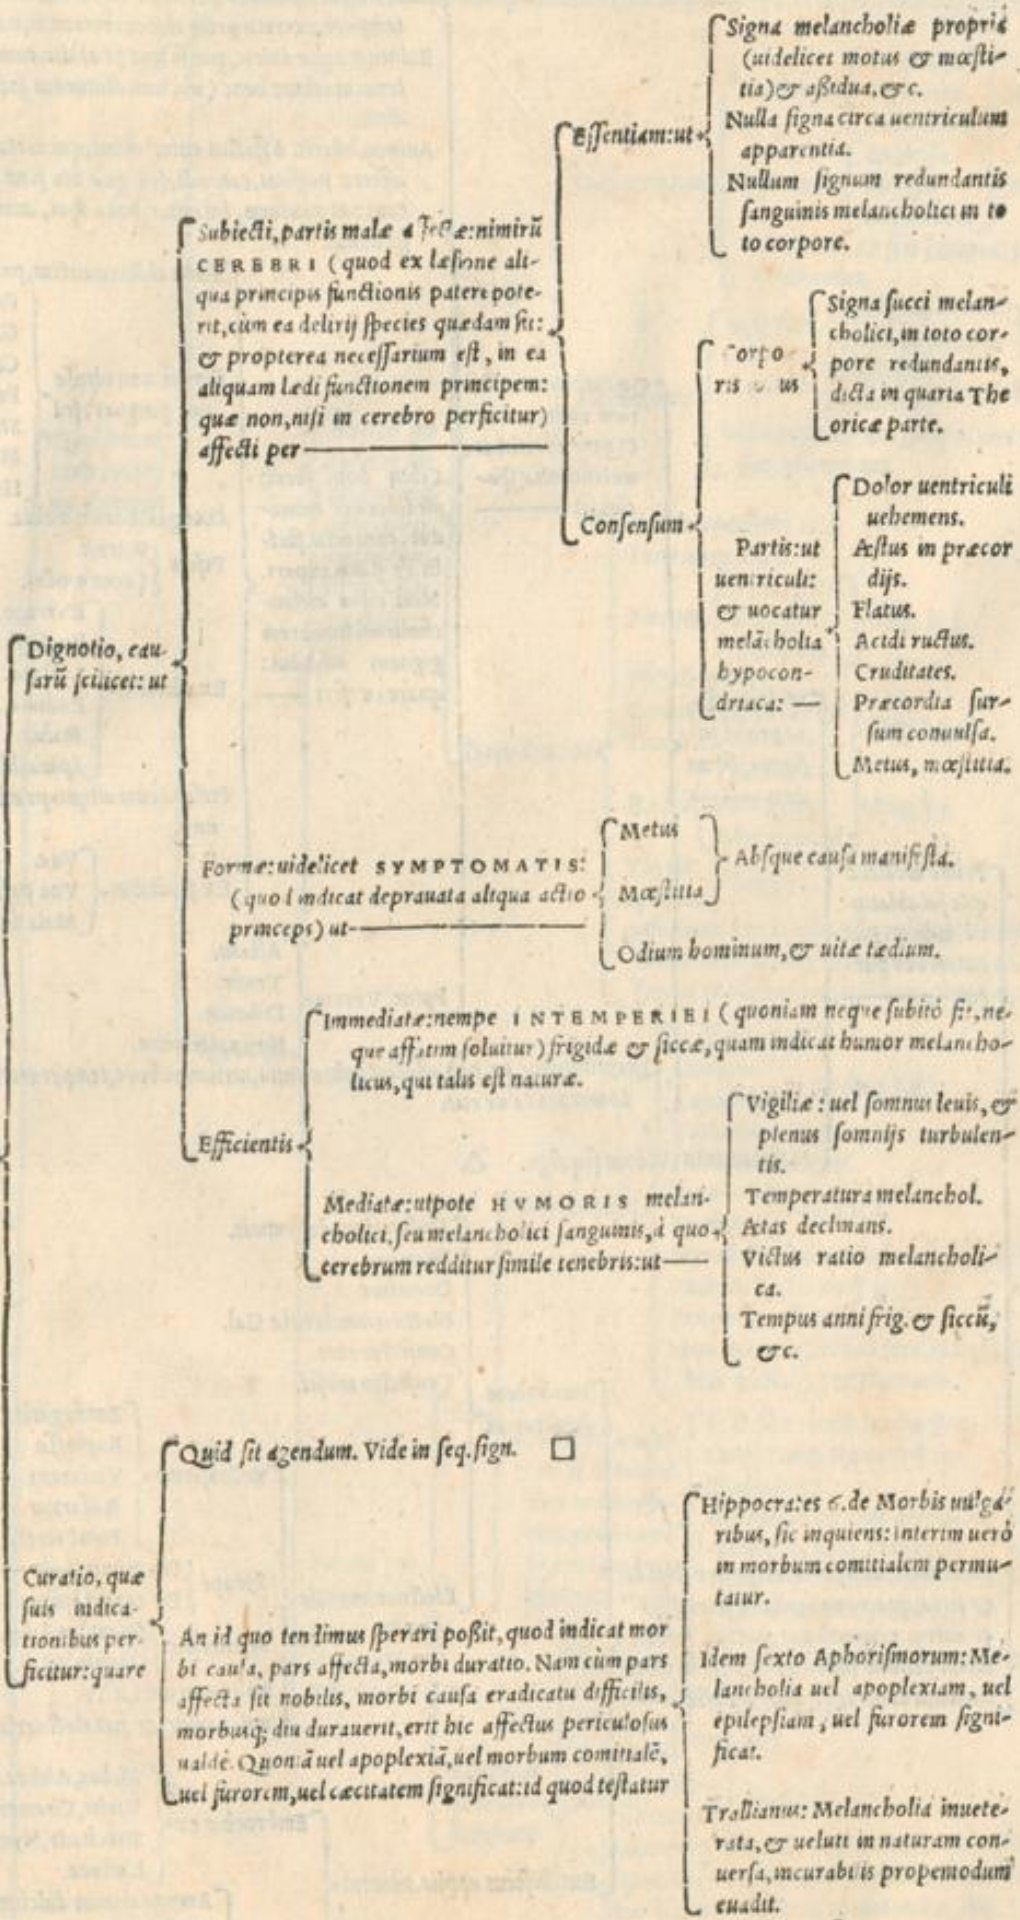 Dignotio, cau-
sarũ scilicet: ut
Subiecti, partis malæ affectæ: nimirũ
CEREBRI (quod ex læsione ali-
qua principis functionis patere pote-
rit, cùm ea delirij species quædam sit:
& propterea necessarium est, in ea
aliquam lædi functionem principem:
quæ non, nisi in cerebro perficitur)
affecti per
Essentiam: ut
Signa melancholiæ propria
(uidelicet motus & mœsti-
tia) & aßidua, &c.
Nulla signa circa uentriculum
apparentia.
Nullum signum redundantis
sanguinis melancholici in to
to corpore.
Consensum
Corpo
ris us
Signa succi melan-
cholici, in toto cor-
pore redundantis,
dicta in quarta The
oricæ parte.
Partis: ut
uentriculi:
& uocatur
melãcholia
hypocon-
driaca:
Dolor uentriculi
uehemens.
Æstus in præcor
dijs.
Flatus.
Acidi ructus.
Cruditates.
Præcordia sur-
sum conuulsa.
Metus, mœstitia.
Formæ: uidelicet SYMPTOMATIS:
(quod indicat deprauata aliqua actio
princeps) ut
Metus
Mœstitia
Absque causa manifesta.
Odium hominum, & uitæ tædium.
Efficientis
Immediatæ: nempe INTEMPERIEI (quoniam neque subitò fit, ne-
que affatim soluitur) frigidæ & siccæ, quam indicat humor melancho-
licus, qui talis est naturæ.
Mediatæ: utpote HVMORIS melan-
cholici, seu melancholici sanguinis, à quo
cerebrum redditur simile tenebris: ut
Vigiliæ: uel somnus leuis, &
plenus somnijs turbulen-
tis.
Temperatura melanchol.
Ætas declinans.
Victus ratio melancholi-
ca.
Tempus anni frig. & siccũ,
&c.
Curatio, quæ
suis indica-
tionibus per-
ficitur: quare
Quid sit agendum. Vide in seq. sign. □
An id quo tendimus sperari poßit, quod indicat mor
bi causa, pars affecta, morbi duratio. Nam cùm pars
affecta sit nobilis, morbi causa eradicatu difficilis,
morbusq; diu durauerit, erit hic affectus periculosus
ualdè. Quoniã uel apoplexiã, uel morbum comitialẽ,
uel furorem, uel cæcitatem significat: id quod testatur
Hippocrates 6. de Morbis uulga-
ribus, sic inquiens: interim uerò
in morbum comitialem permu-
tatur.
Idem sexto Aphorismorum: Me-
lancholia uel apoplexiam, uel
epilepsiam, uel furorem signi-
ficat.
Trallianus: Melancholia inuete-
rata, & ueluti in naturam con-
uersa, incurabilis propemodum
euadit.